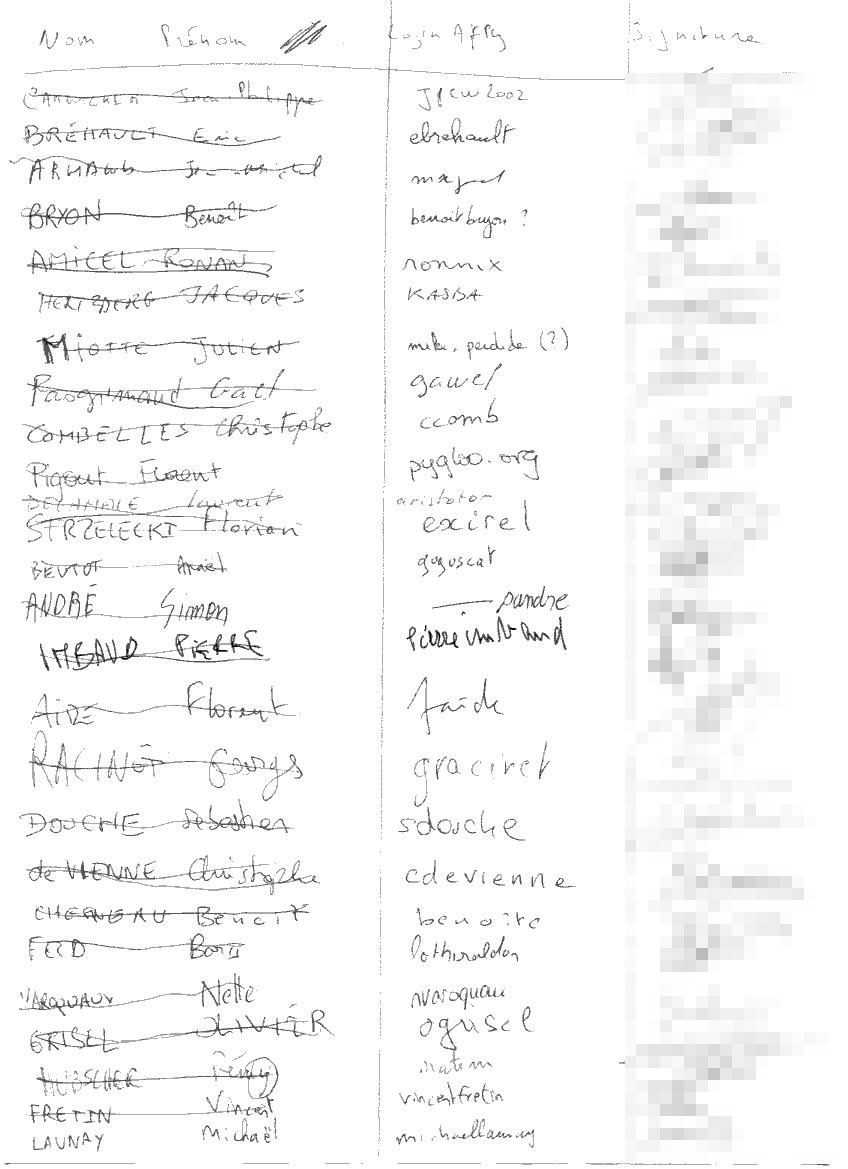 Nom Prénom Login Afpy Signature
Jean Philippe JPCW2002
BRÉHAULT Eric ebrehault
ARNAUD
BRYON Benoît benoitbryon ?
AMICEL RONAN ronnix
HERTZBERG JACQUES KASBA
MIOTTE JULIEN perdide (?)
Gaël gawel
COMBELLES Christophe ccomb
Pigout Florent pygloo.org
Laurent
STRZELECKI Florian exirel
goguscat
ANDRÉ Simon sandre
IMBAUD PIERRE pierreimbaud
AIDE Florent faide
RACINET Georges gracinet
DOUCHE Sebastien sdouche
de VIENNE Christophe cdevienne
CHESNEAU Benoit benoitc
FELD Boris lothiraldan
VAROQUAUX Nelle nvaroquau
GRISEL OLIVIER ogrisel
HUBSCHER Rémy natim
FRETIN Vincent vincentfretin
LAUNAY Michaël michaellaunay